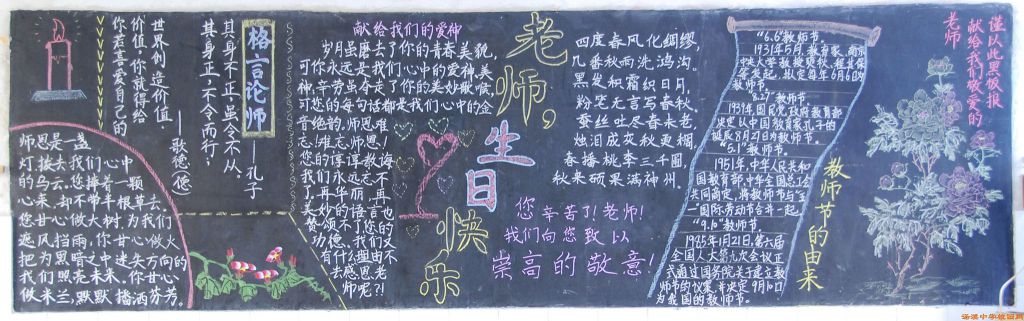 世界创造价值,
价值,你就得给
你若喜爱自己的
——歌德(德)
师恩是一盏
灯,拨去我们心中
的乌云。您捧着一颗
心来,却不带半根草去。
您甘心做大树,为我们
遮风挡雨,你甘心做火
把为黑暗之中迷失方向的
我们照亮未来。你甘心
做米兰,默默播洒芬芳。
格言论师
——孔子
其身不正,虽令不从
其身正,不令而行;
献给我们的爱神
岁月虽磨去了你的青春美貌,
可你永远是我们心中的爱神,美
神,辛劳虽夺走了你的美妙歌喉,
可您的每句话都是我们心中的金
音绝韵。师恩难
忘!难忘师恩!
您的谆谆教诲
我们永远忘不
了。再华丽、再
美妙的语言也
赞颂不了您的
功德。我们又
有什么理由不
去感恩老
师呢?!
老师,
生日
快乐
四度春风化绸缪,
几番秋雨洗鸿沟。
黑发积霜织日月,
粉笔无言写春秋。
蚕丝吐尽春未老,
烛泪成灰秋更稠。
春播桃李三千圃,
秋来硕果满神州。
您辛苦了!老师!
我们向您致以
崇高的敬意!
"6.6"教师节。
1931年5月,教育家、南京
中央大学教授
等发起,拟定每年6月6日
教师节。
"8.27"教师节。
1939年国民党政府教育部
决定以中国教育家孔子的
诞辰8月27日为教师节。
"5.1"教师节。
1951年,中华人民共和
国教育部、中华全国总工会
共同商定,将教师节与"五
一"国际劳动节合并一起。
"9.10"教师节。
1985年1月21日,第六届
全国人大第九次会议正
式通过国务院关于建立教
师节的议案,并决定9月10日
为我国的教师节。
教师节的由来
谨以此黑板报
献给我们敬爱的
老师